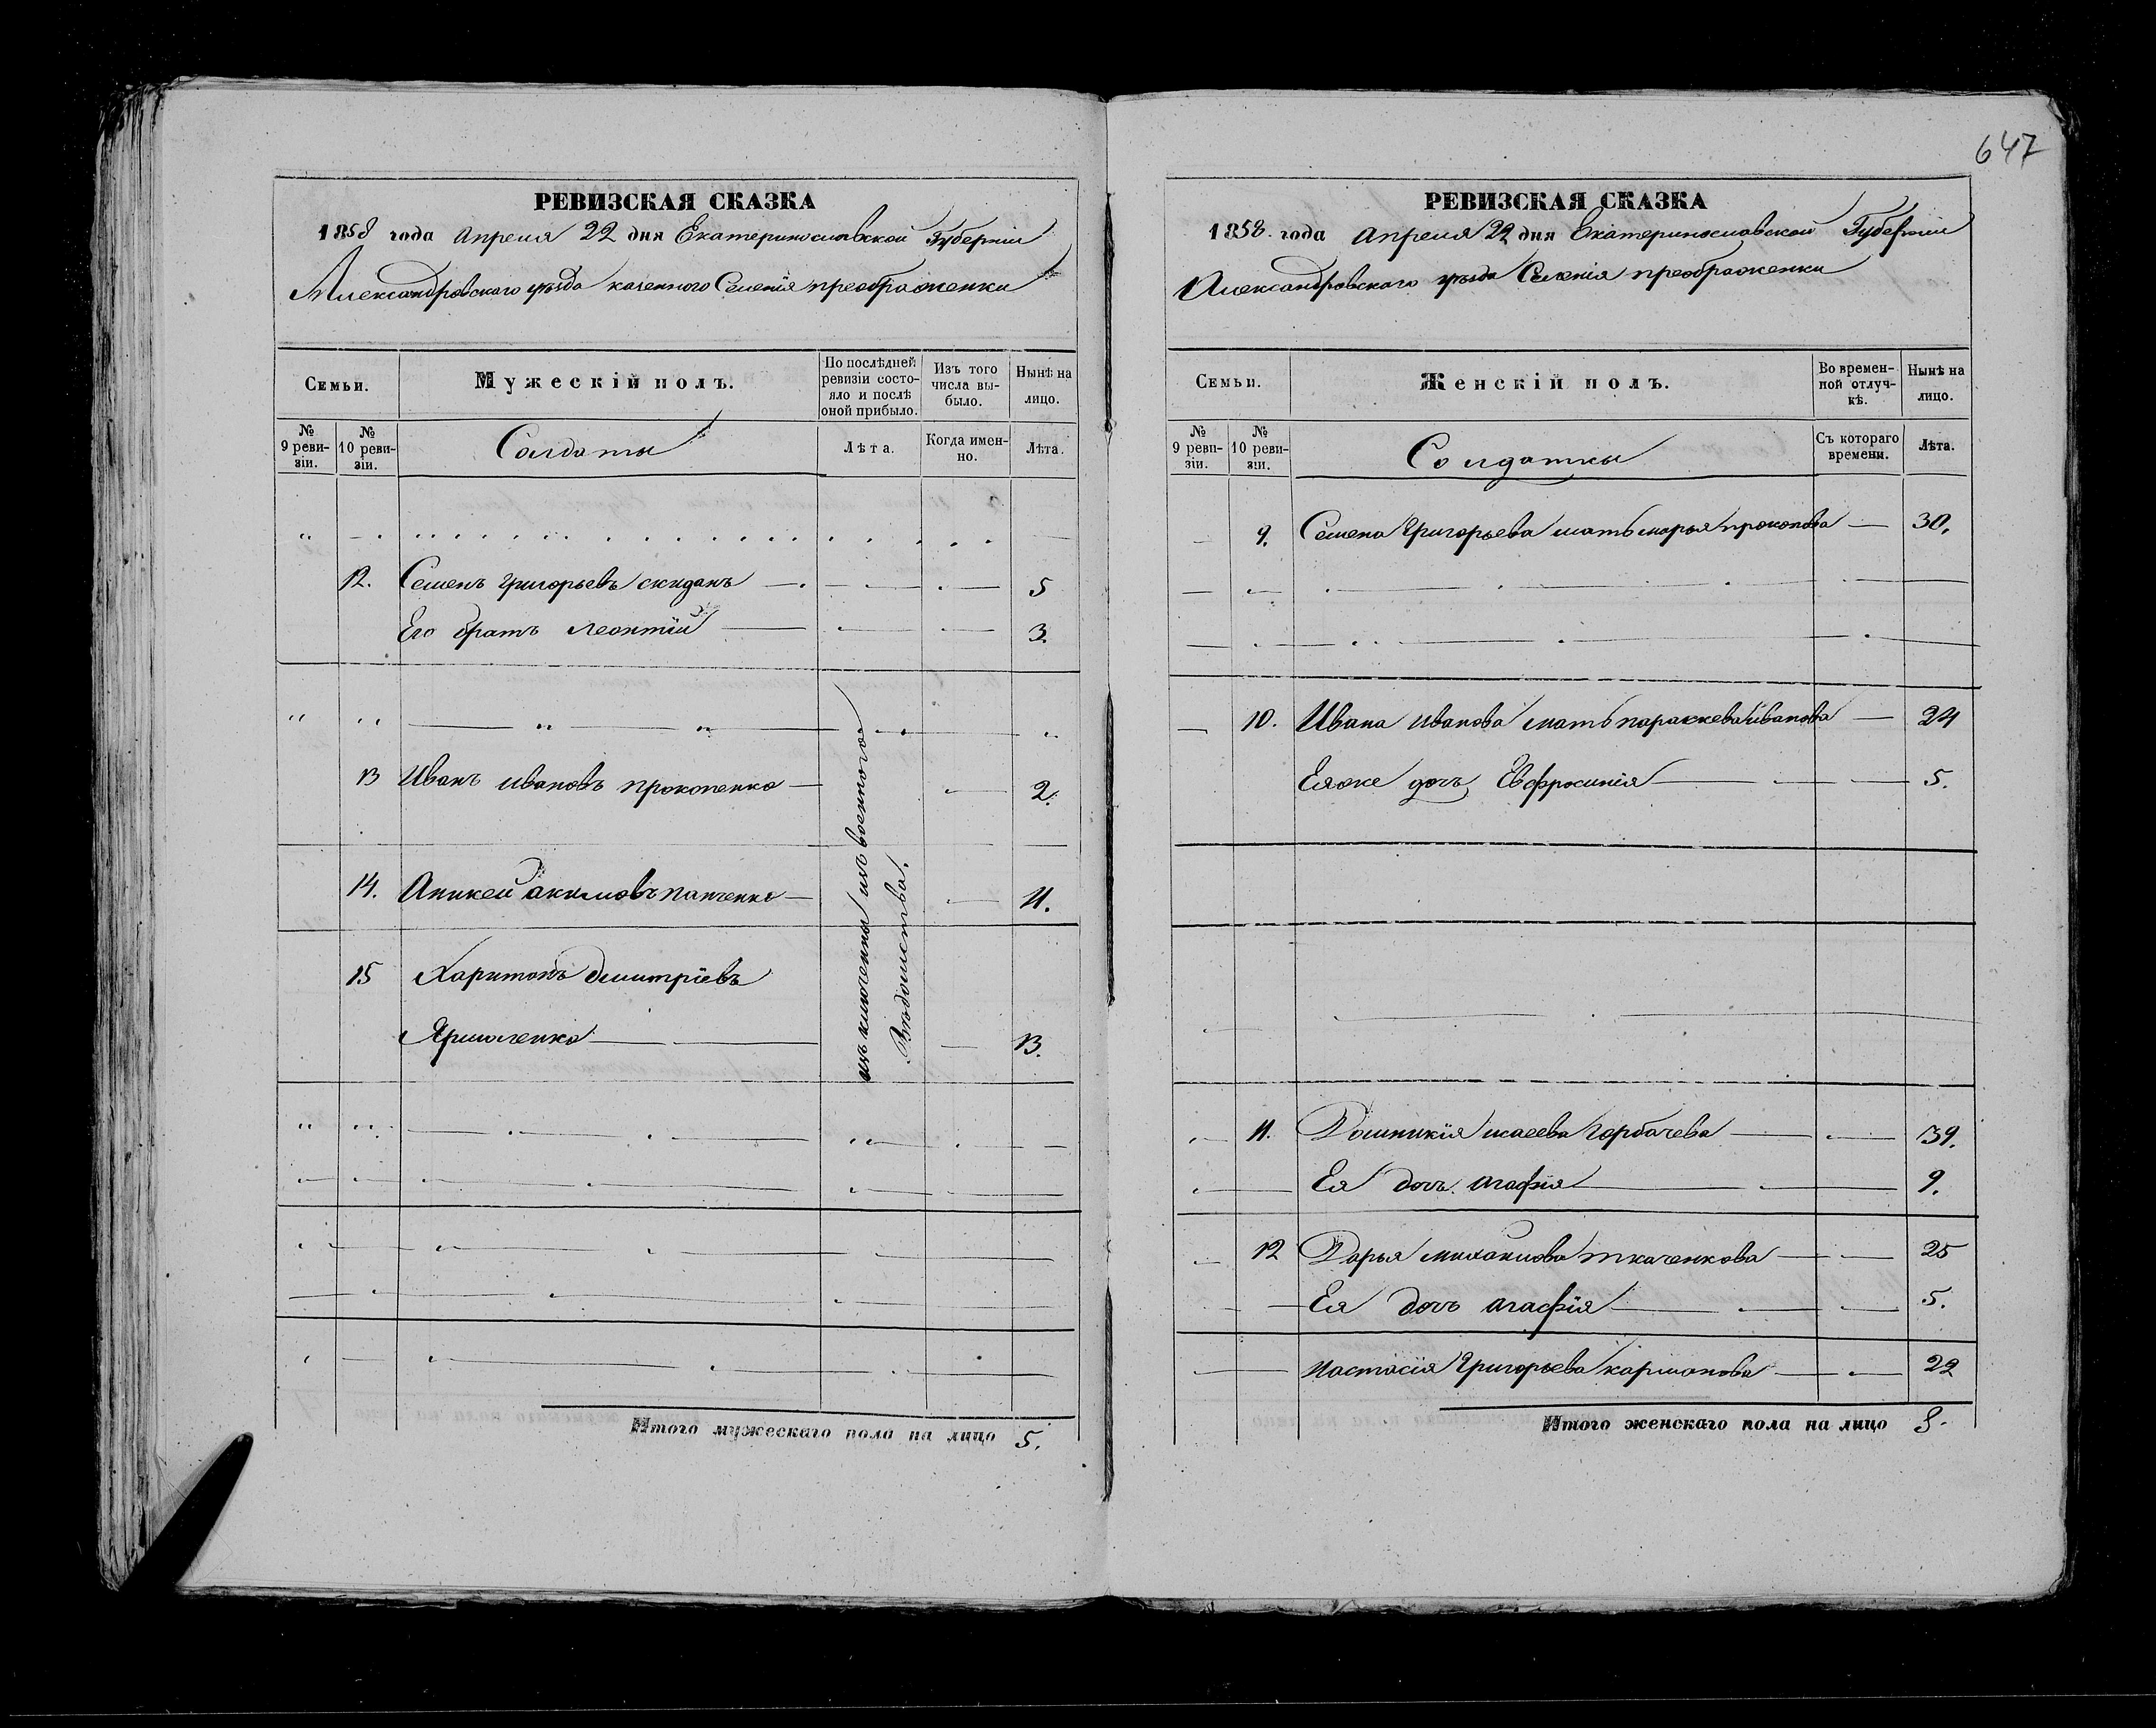 647
РЕВИЗСКАЯ СКАЗКА
1858 года Апреля 22 дня Екатеринославской Губерніи
Александровского уѣзда казенного Селенія преображенки
Семьи.
Мужескій полъ.
По послѣдней ревизіи состояло и послѣ оной прибыло.
Изъ того числа выбыло.
Нынѣ на лицо.
№ 9 ревизіи.
№ 10 ревизіи.
Солдаты
Лѣта.
Когда именно.
Лѣта.
12. Семенъ григорьевъ скиданъ 5
Его братъ леонтій 3.
13 Иванъ ивановъ прокопенко 2.
14. Аникей акимовъ панченко 11.
15 Харитонъ дмитріевъ
Ярмоленко 13.
изъключенны изъ военного
Вѣдомства.
Итого мужескаго пола на лицо 5.
РЕВИЗСКАЯ СКАЗКА
1858. года Апреля 22 дня Екатеринославской Губерніи
Александровскаго уѣзда Селенія преображенки
Семьи.
Женскій полъ.
Во временной отлучкѣ.
Нынѣ на лицо.
№ 9 ревизіи.
№ 10 ревизіи.
Солдатки
Съ котораго времени.
Лѣта.
9. Семена Григорьева мать марья прокопова 30.
10. Ивана иванова мать параскева иванова 24
Еяже дочь Евфросинія 5.
11. Домникія исаева Горбачева 39.
Ея дочь агафія 9.
12 Дарья михаилова ткаченкова 25
Ея дочь агафія 5.
настасія Григорьева карманова 22
Итого женскаго пола на лицо 8.